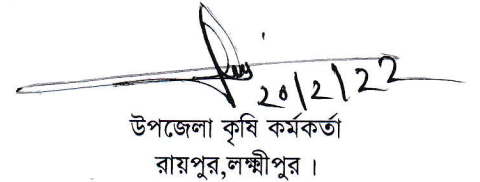 20/2/22
উপজেলা কৃষি কর্মকর্তা
রায়পুর,লক্ষ্মীপুর ।